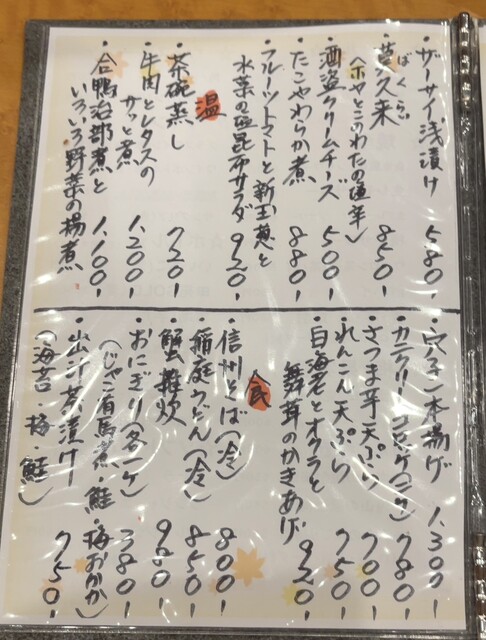 ・ザーサイ浅漬け 580-
・莫久来 850-
ばくらい
(ホヤとこのわたの塩辛)
・酒盗クリームチーズ 500-
・たこやわらか煮 880-
・フルーツトマトと新玉葱と
水菜の塩昆布サラダ 920-
温
・茶碗蒸し 720-
・牛肉とレタスの
サッと煮 1,200-
・合鴨治部煮と
いろいろ野菜の揚煮 1,100-
本揚げ 1,300-
・カニクリーコロッケ(一ケ) 780-
・さつま芋天ぷら 700-
・れんこん天ぷら 750-
・白海老とオクラと
舞茸のかきあげ 920-
食
・信州そば(冷) 800-
・稲庭うどん(冷) 850-
・蟹雑炊 980-
・おにぎり(各一ケ) 380-
(じゃこ有馬煮・鮭・梅おかか)
・出汁茶漬け 750-
(海苔 梅 鮭)